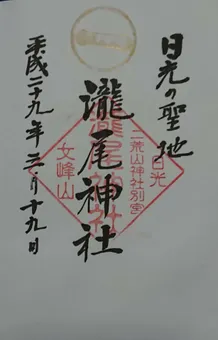 日光の聖地
瀧尾神社
平成二十九年三月十九日
日光
二荒山神社別宮
瀧尾神社
女峰山